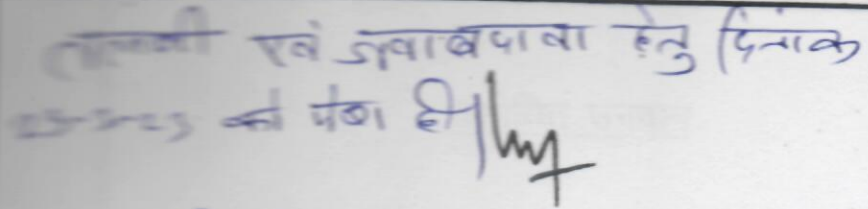 तलवी एवं जवाबदावा हेतु दिनांक
को पेश हो।